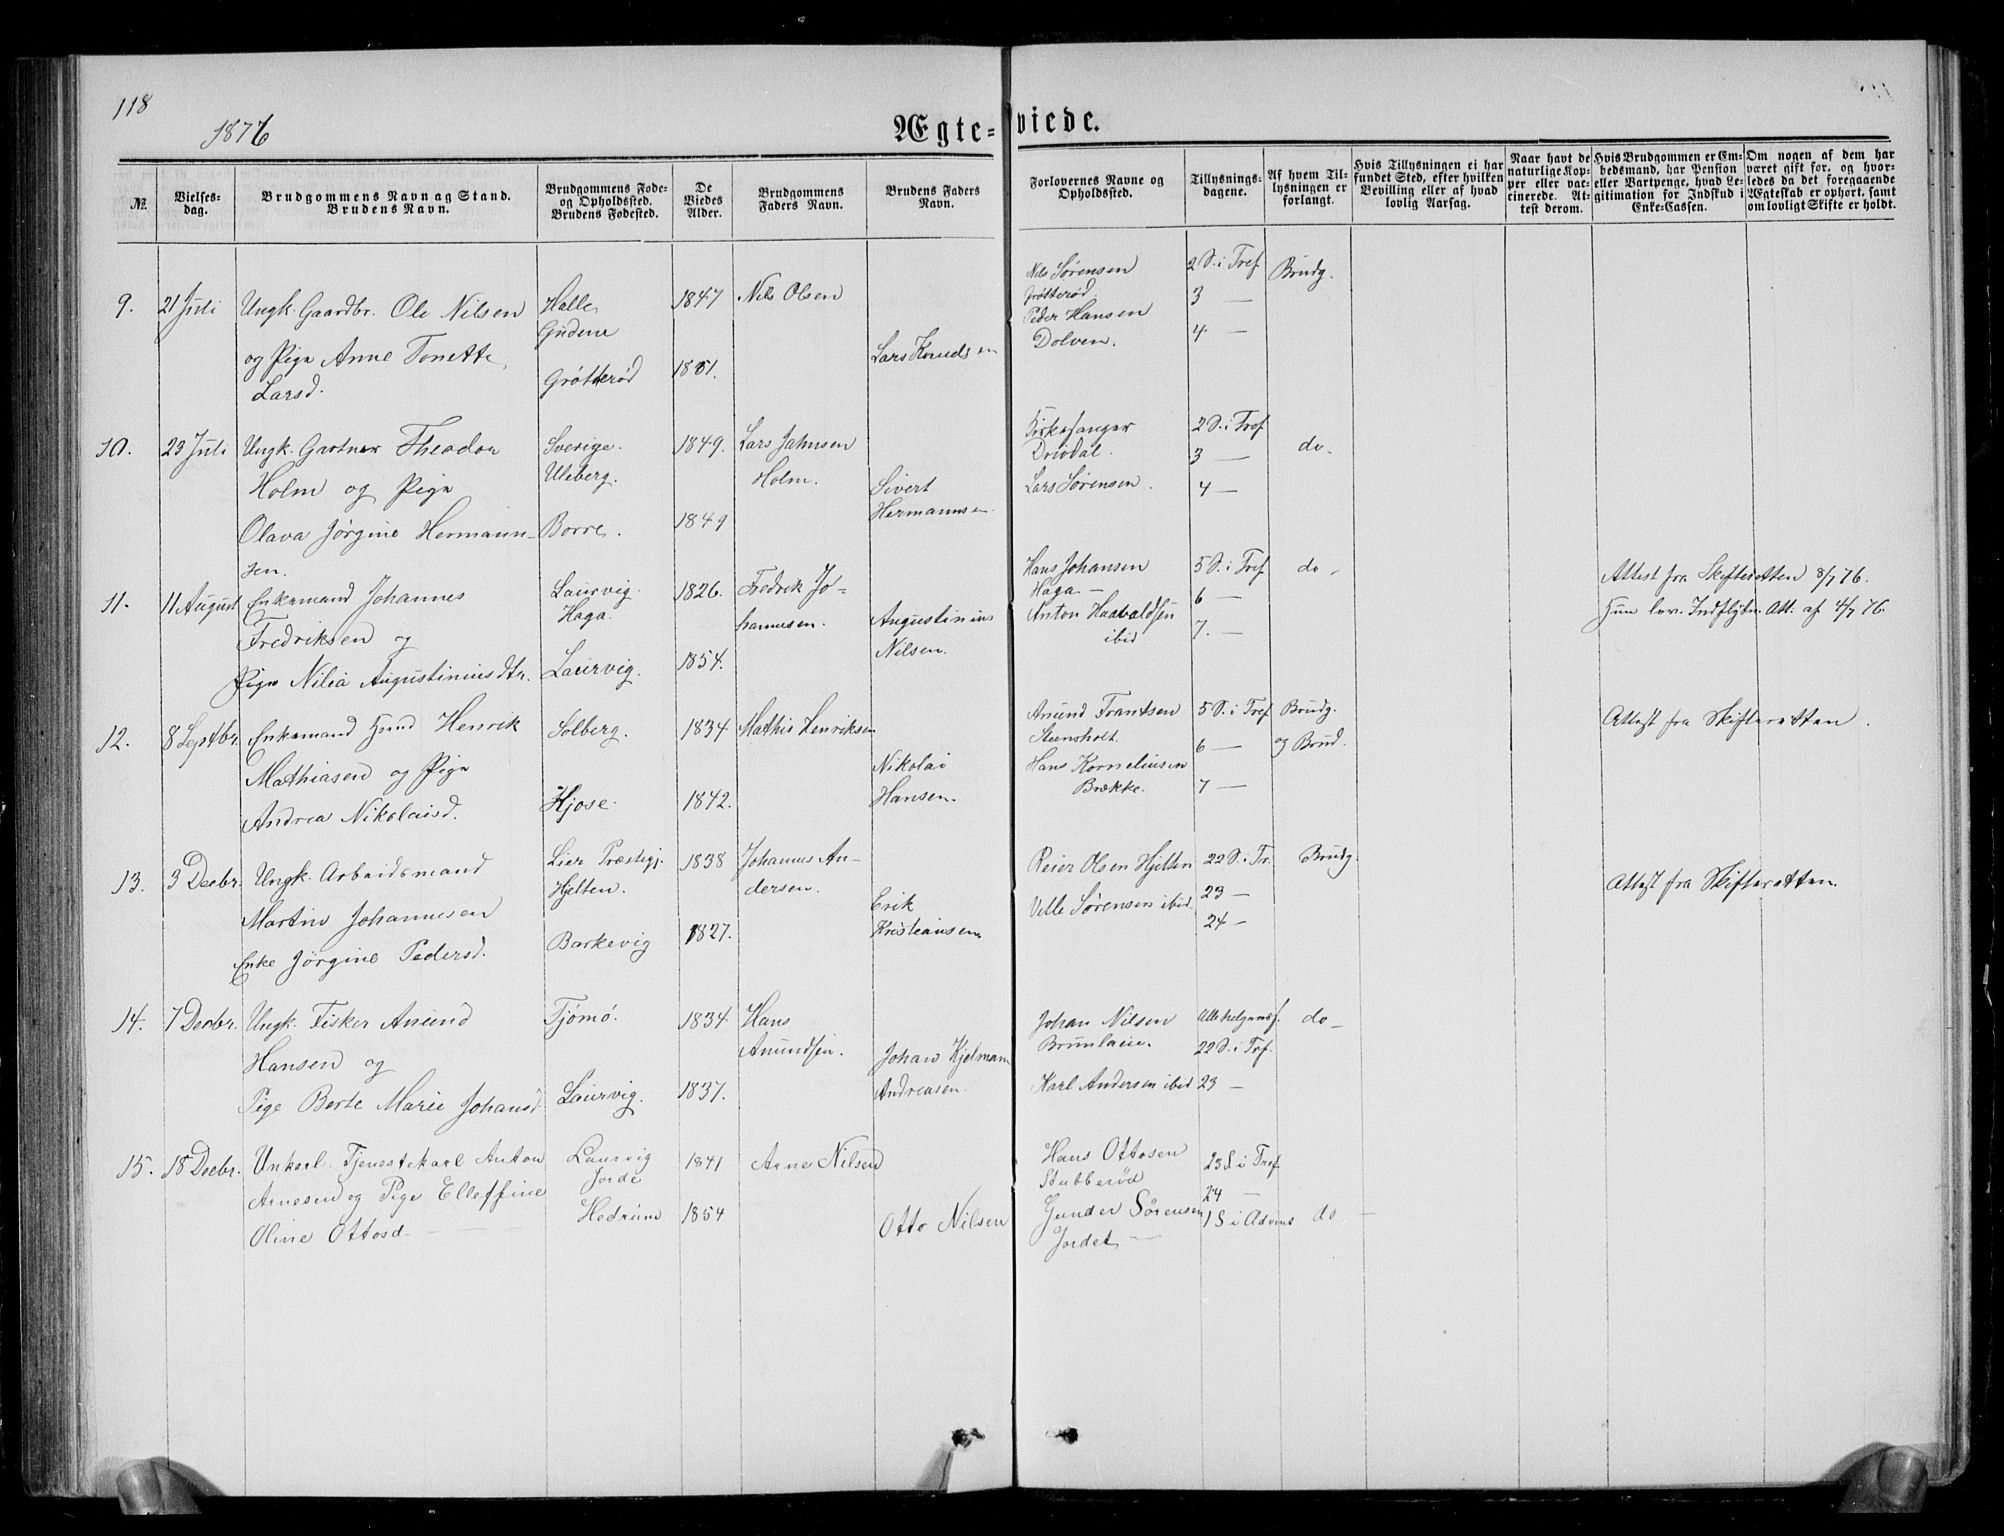 118
1876
Ægte-viede.
No.
Vielses-dag.
Brudgommens Navn og Stand. Brudens Navn.
Brudgommens Føde- og Opholdssted. Brudens Fødested.
De Viedes Alder.
Brudgommens Faders Navn.
Brudens Faders Navn.
Forlovernes Navne og Opholdssted.
Tillysnings-dagene.
Af hvem Til-lysningen er forlangt.
Hvis Tillysningen ei har fundet Sted, efter hvilken Bevilling eller af hvad lovlig Aarsag.
Naar havt de naturlige Kop-per eller vac-cinerede. At-test derom.
Hvis Brudgommen er Em-bedsmand, har Pension eller Vartpenge, hvad Le-gitimation for Indskud i Enke-Cassen.
Om nogen af dem har været gift før, og hvor-ledes da det foregaaende Ægteskab er ophørt, samt om lovligt Skifte er holdt.
9. 21 Juli Ungk. Gaardbr. Ole Nilsen Halle 1847 Nils Olsen Nils Sørensen 2 S. i Tref. Brudg.
Gudene Grøtterød 3 —
og Pige Anne Tonette Lars Knudsen Peder Hansen 4 —
Larsd. Grøtterød 1851. Dolven.
10. 23 Juli Ungk. Gartner Theodor Sverige. 1849. Lars Jahnsen Kirkesanger 2 S. i Tref. do.
Holm og Pige Uleberg. Holm. Sivert Driodal. 3 —
Olava Jørgine Hermann- Borre. 1849 Hermannsen. Lars Sørensen. 4 —
sen.
11. 11 August Enkemand Johannes Laurvig. 1826. Fredrik Jo- Hans Johansen 5 S. i Tref. do — Attest fra Skifteretten 8/7 76.
Fredriksen og Haga. hannesen. Augustinius Haga — 6 — Hun lev. Indflytn. Att. af 4/7 76.
Pige Nilia Augustiniusdtr. Laurvig. 1854. Nilsen. Anton Haavaldsen ibid 7. —
12. 8 Septbr. Enkemand Henrik Solberg. 1834. Mathis Henriksen Amund Frantsen 5 S. i Tref. Brudg. Attest fra Skifteretten.
Mathiasen og Pige Nikolai Steensholt. 6 — og Brud.
Andrea Nikolaisd. Kjose. 1842. Hansen. Hans Korneliusen Brække. 7 —
13. 3 Decbr. Ungk. Arbeidsmand Lier Præstegj. 1838 Johannes An- Reier Olsen Hjelten 22 S. i Tr. Brudg. Attest fra Skifteretten.
Martin Johannesen Hjelten. dersen. Erik Velle Sørensen ibid 23 —
Enke Jørgine Pedersd. Barkevig 1827. Kristiansen 24 —
14. 7 Decbr. Ungk. Fisker Amund Tjømø. 1834. Hans Johan Nilsen Allehelgensf. do —
Hansen og Amundsen. Johan Kjelman Brunlaue. 22 S. i Tref.
Pige Berte Marie Johansd. Laurvig. 1837. Andreasen. Karl Andersen ibid 23 —
15. 18 Decbr. Unkarl. Tjenestekarl Anton Laurvig 1841 Arne Nilsen Hans Ottosen 23 S i Tref.
Arnesen og Pige Elleffine Jorde Stubberød 24 —
Oline Ottosd. Hedrum 1854 Otto Nilsen Gunder Sørensen 1 S i Advent do —
Jordet —